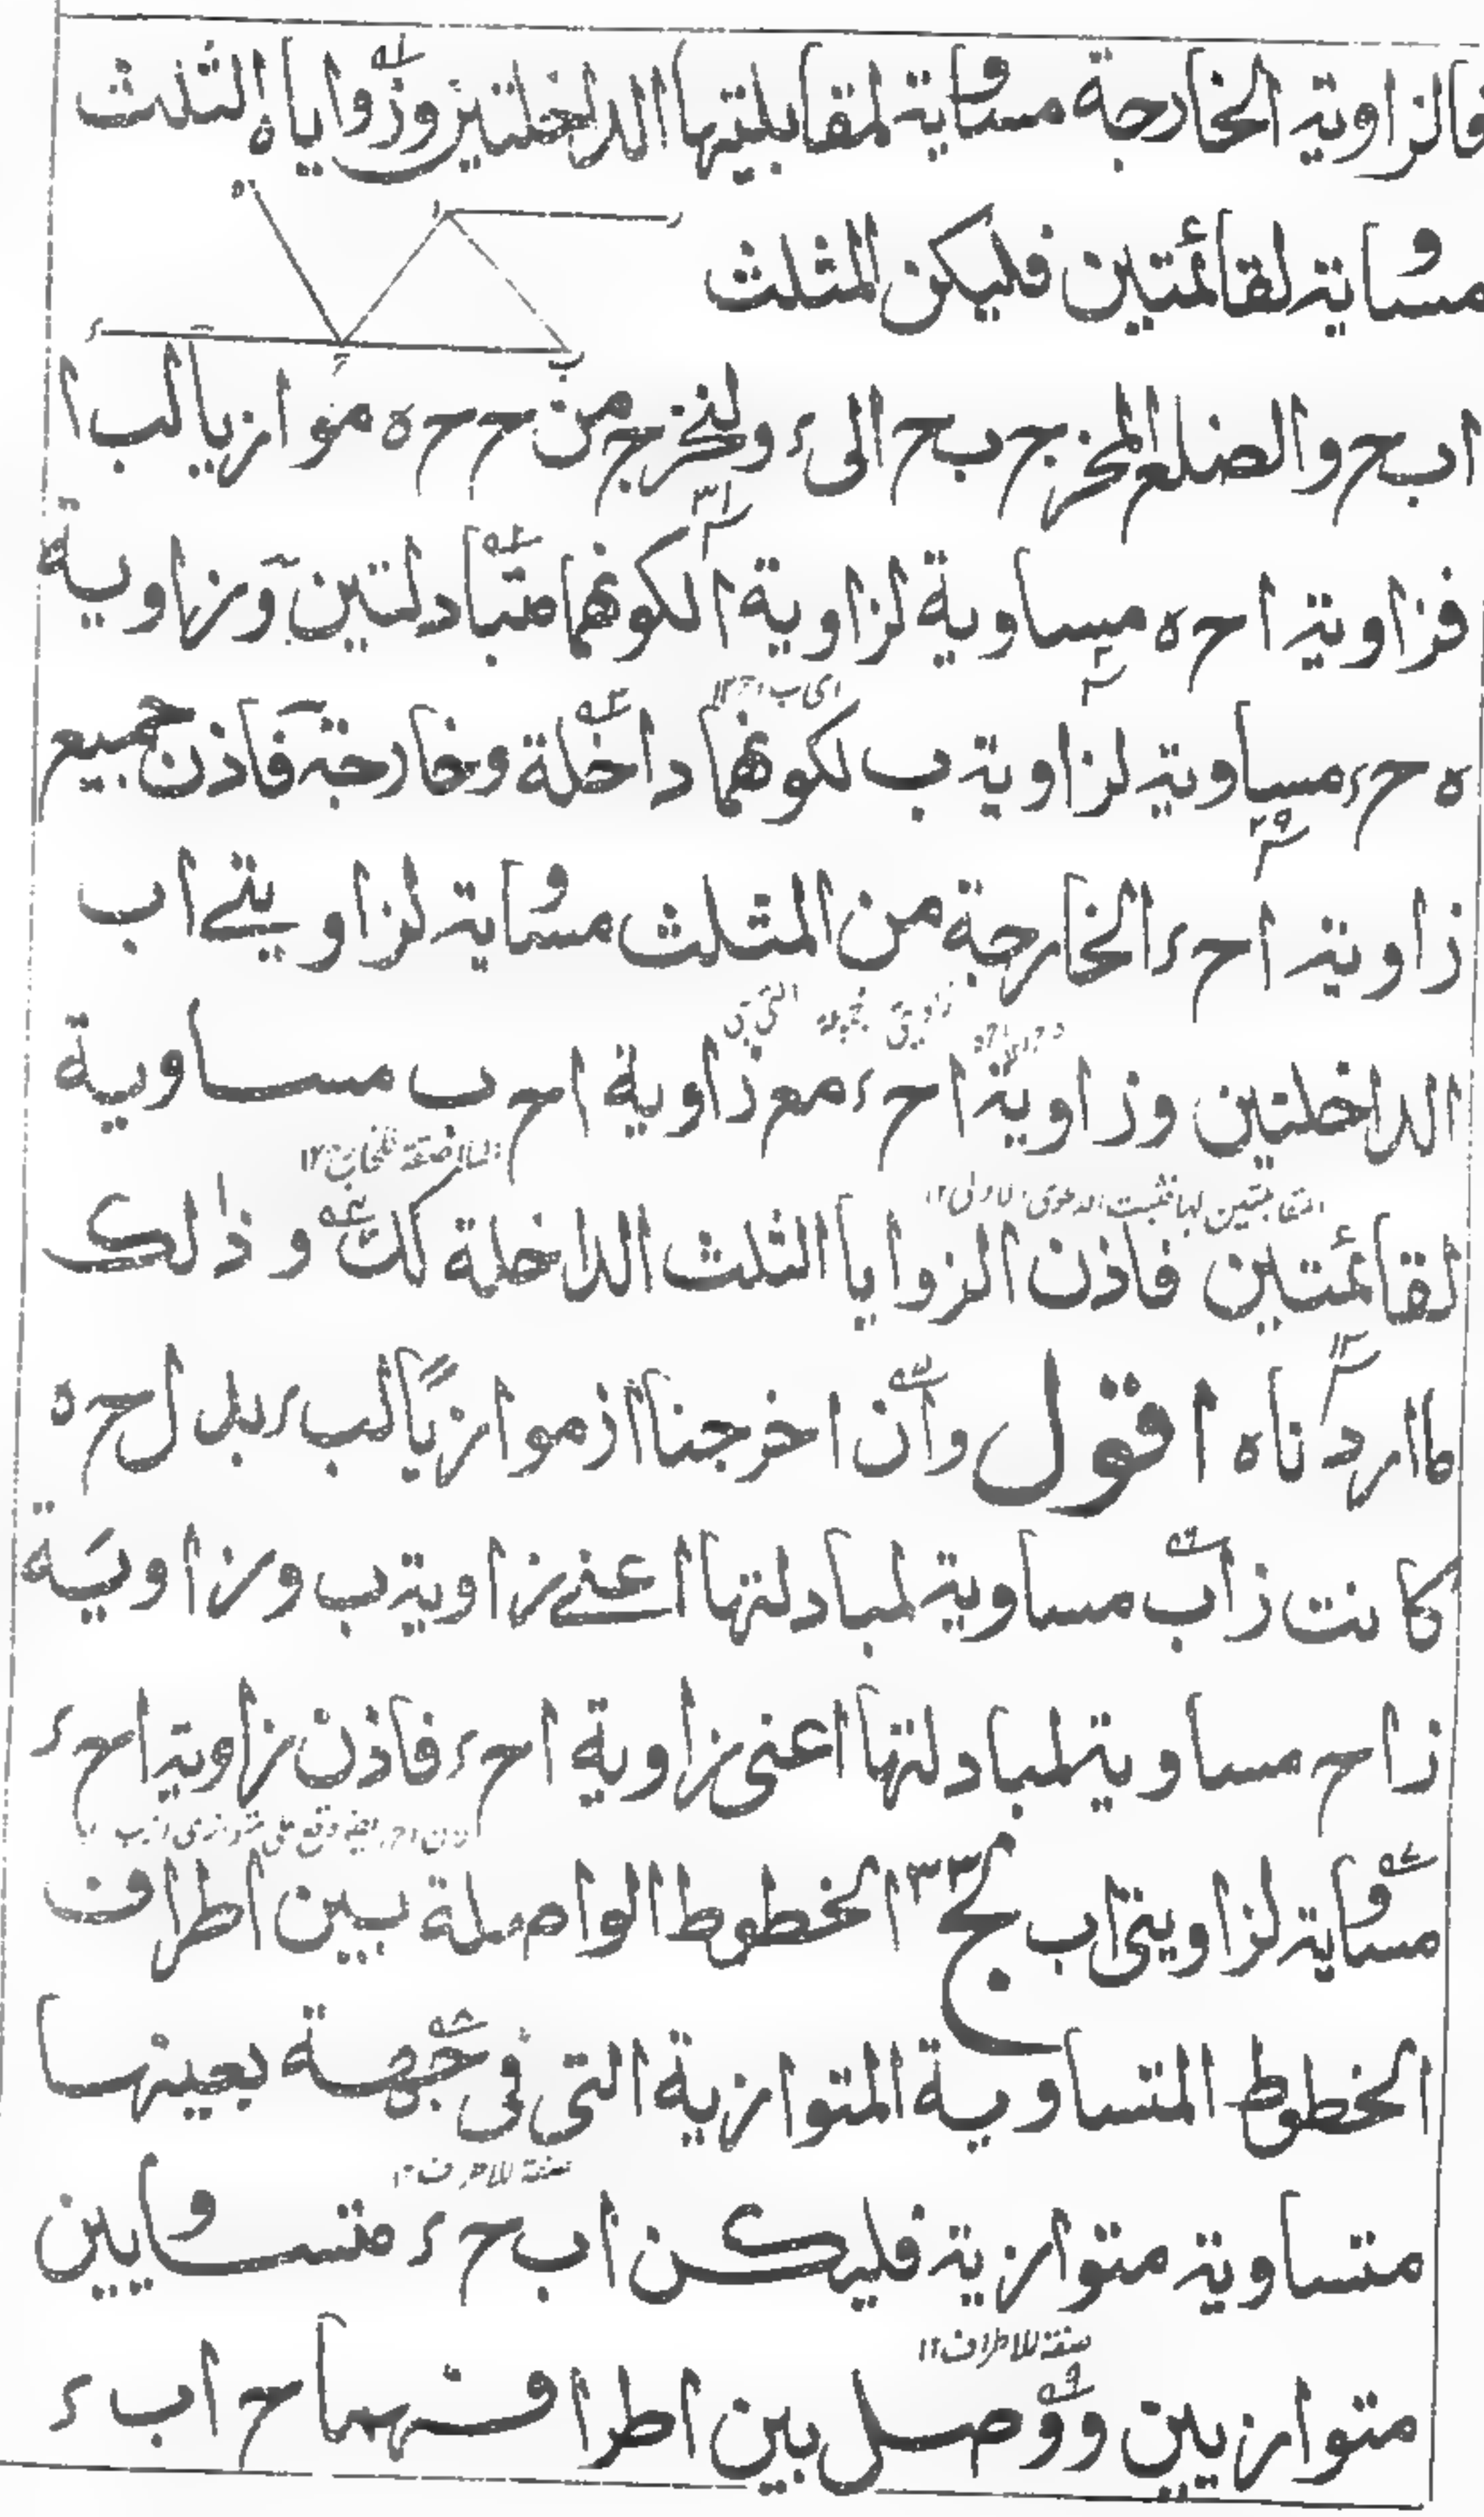 فالزاوية الخارجة مساوية لمقابلتيها الداخلتين وزواياه الثلث
مساوية لقائمتين فليكن المثلث
ا ب ح والضلع المخرج ب ح الى ء ولنخرج من ح ح ه موازيا لب ا
فزاوية ا ح ه مساوية لزاوية ا لكونهما متبادلتين وزاوية
ه ح ء مساوية لزاوية ب لكونهما داخلة وخارجة فاذن جميع
زاوية ا ح ء الخارجة من المثلث مساوية لزاويتے ا ب
الداخلتين وزاوية ا ح ء مع زاوية ا ح ب مساوية
لقائمتين فاذن الزوايا الثلث الداخلة كك و ذلك
ما اردناه اقول وان اخرجنا ا ز موازيا لب ء بدل ح ه
كانت ز ا ب مساوية لمبادلتها اعنے زاوية ب وزاوية
ز ا ح مساوية لمبادلتها اعنى زاوية ا ح ء فاذن زاوية ا ح ء
مساوية لزاويتى ا ب لج ٣٣ الخطوط الواصلة بين اطراف
الخطوط المتساوية المتوازية التى فى جهة بعينها
متساوية متوازية فليكن ا ب ح ء متساويين
صفة للاطراف ١٢
متوازيين ووصل بين اطرافهما ح ا ب ء